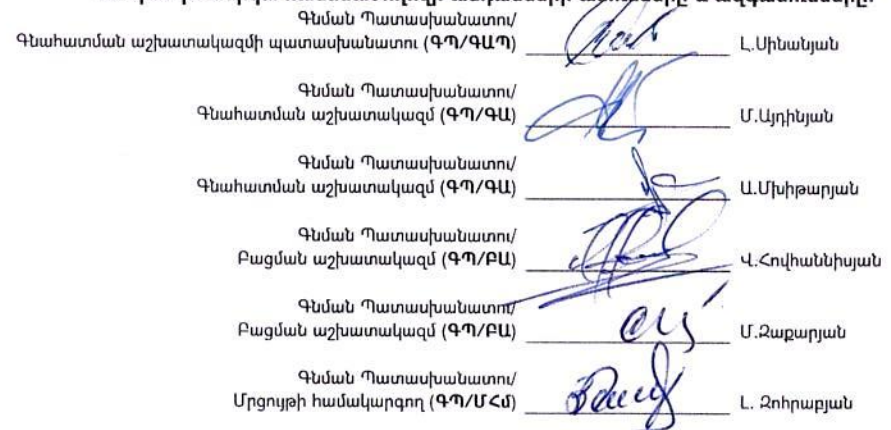 Գնման Պատասխանատու/
Գնահատման աշխատակազմի պատասխանատու (ԳՊ/ԳԱՊ) Լ.Սինանյան
Գնման Պատասխանատու/
Գնահատման աշխատակազմ (ԳՊ/ԳԱ) Մ.Այդինյան
Գնման Պատասխանատու/
Գնահատման աշխատակազմ (ԳՊ/ԳԱ) Ա.Մխիթարյան
Գնման Պատասխանատու/
Բացման աշխատակազմ (ԳՊ/ԲԱ) Վ.Հովհաննիսյան
Գնման Պատասխանատու/
Բացման աշխատակազմ (ԳՊ/ԲԱ) Մ.Զաքարյան
Գնման Պատասխանատու/
Մրցույթի համակարգող (ԳՊ/ՄՀմ) Լ. Զոհրաբյան